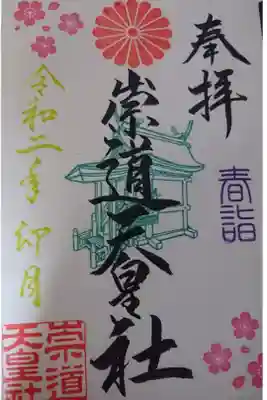 奉拝
春詣
崇道天皇社
令和二年卯月
崇道
天皇社